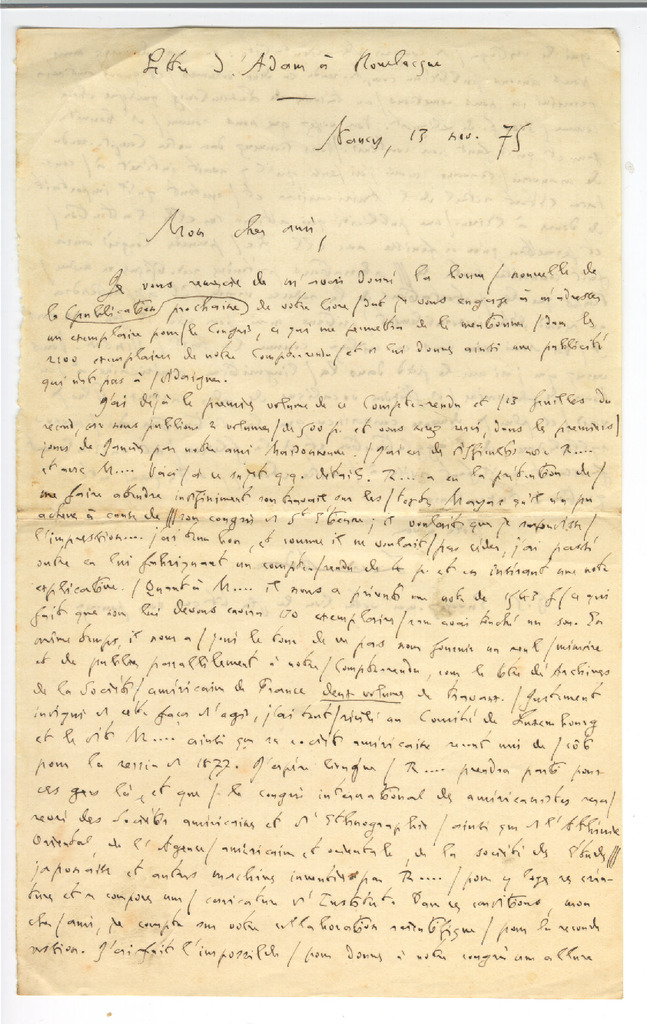 Lettre d'Adam à
Nancy, 13 nov. 75
Mon cher ami,
Je vous remercie de m'avoir donné la bonne / nouvelle de
la (publication prochaine) de votre livre / dont je vous engage à m'adresser
un exemplaire pour / le Congrès, ce qui me permettra de le mentionner / dans les
exemplaires de notre Compte-rendu / et lui donner ainsi une publicité
qui n'est pas à / dédaigner.
J'ai déjà le premier volume de ce Compte-rendu et / 13 feuilles du
second, car nous publions 2 volumes / de 500 p. et vous aurez reçu, dans les premiers /
jours de Janvier par notre ami Maisonneuve. / J'ai eu des difficultés avec R....
et avec M.... Voici / à ce sujet q.q. détails. R.... a eu la prétention de /
me faire attendre indéfiniment son travail sur les / textes Mayas qu'il n'a pu
achever à cause de son congrès de St Etienne ; il voulait que je /
l'impression.... j'ai tenu bon, et comme il ne voulait / pas céder, j'ai passé
outre en lui un compte / rendu de 4 p. et en insérant une note
explicative. / Quant à M.... il nous a présenté une note de 1543 f / ce qui
fait que nous lui devons envoi exemplaires / sans avoir touché un sou. En
même temps, il nous a / joué le tour de ne pas nous fournir un seul / mémoire
et de publier parallèlement à notre / Compte-rendu, sous le titre des Archives
de la Société / américaine de France deux volumes de travaux. / Justement
indigné de cette façon d'agir, j'ai au Comité de Luxembourg
et le M.... ainsi que sa société américaine seront mis de / côté
pour la session de 1877. J'espère R.... prendra parti pour
ces gens là, et que / le congrès international des américanistes sera /
des Sociétés américaine et d'Ethnographie / ainsi que de l'Athénée
Oriental de l' / américaine et orientale, de la société des Etudes
japonaises et autres machines inventées par R.... / pour y loger ses
et composer une / caricature d'Institut. Dans ces conditions, mon
cher / ami, je compte sur votre collaboration scientifique / pour la seconde
session. J'ai fait l'impossible / pour donner à notre congrès une allure